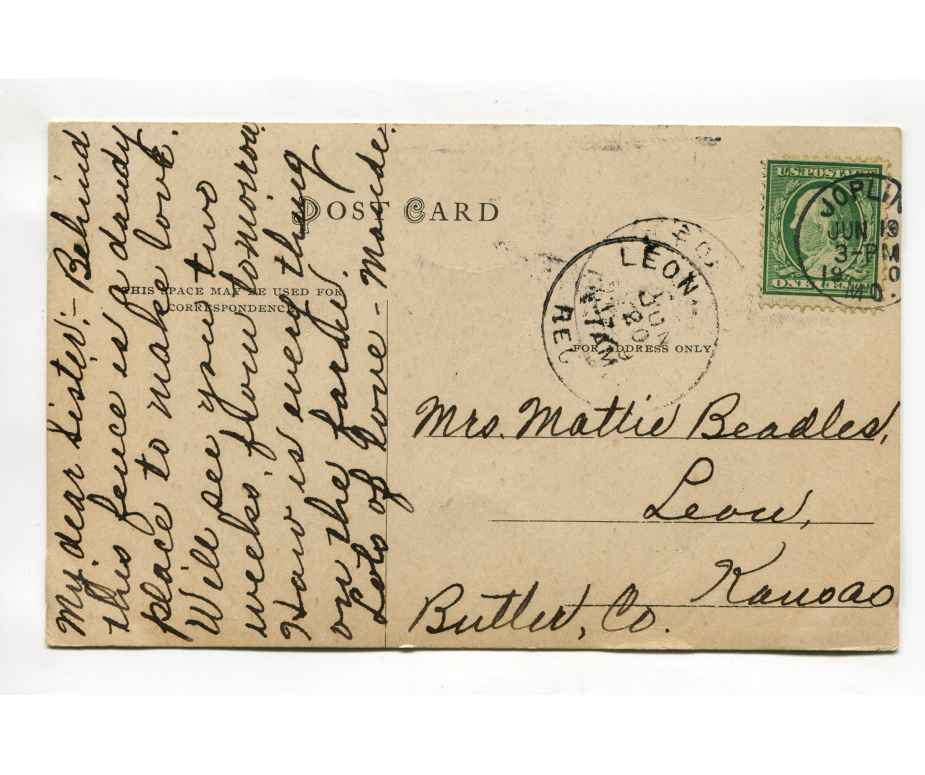 My dear Sister:- Behind
this fence is a dandy
place to make love.
Will see you two
weeks' from tomorrow.
How is every thing
on the farm?
Lots of Love - Maude.
POST CARD
THIS SPACE MAY BE USED FOR
CORRESPONDENCE
FOR ADDRESS ONLY
U.S. POST
ONE
JOPLIN
JUN 19
3-PM
19 0
MO.
LEON
JUN
20
REC
Mrs. Mattie Beadles,
Leon,
Kansas
Butler, Co.